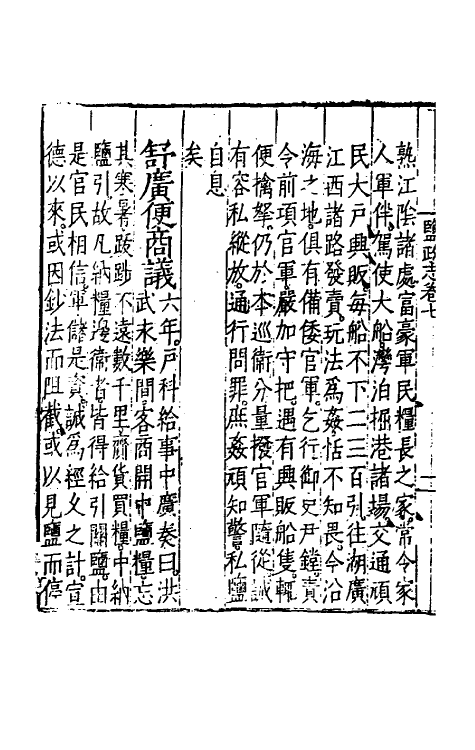 鹽政志卷七
熟江陰諸處富豪軍民糧長之家常令家
人軍伴駕使大船灣泊掘港諸場交通頑
民大戶興販每船不下二三百引往湖廣
江西諸路發賣玩法為姦恬不知畏今沿
海之地俱有備倭官軍乞行御史尹鏜責
令前項官軍嚴加守把遇有興販船隻輒
便擒拏仍於本巡衛分量撥官軍隨從誡
有容私縱放通行問罪庶姦頑知警私鹽
自息
矣
舒廣便商議六年戶科給事中廣奏曰洪
武末樂間客商開中鹽糧忘
其寒暑跋踄不遠數千里齎貨買糧中納
鹽引故凡納糧邊衛者皆得給引關鹽由
是官民相信軍儲是資誠為經久之計宣
德以來或因鈔法而阻截或以見鹽而停